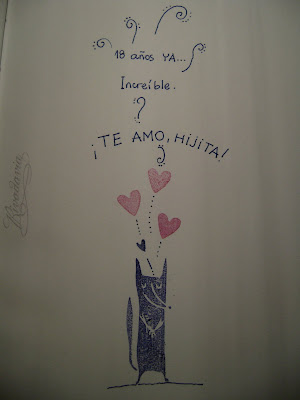 18 años YA...
Increíble.
¡TE AMO, HIJITA!